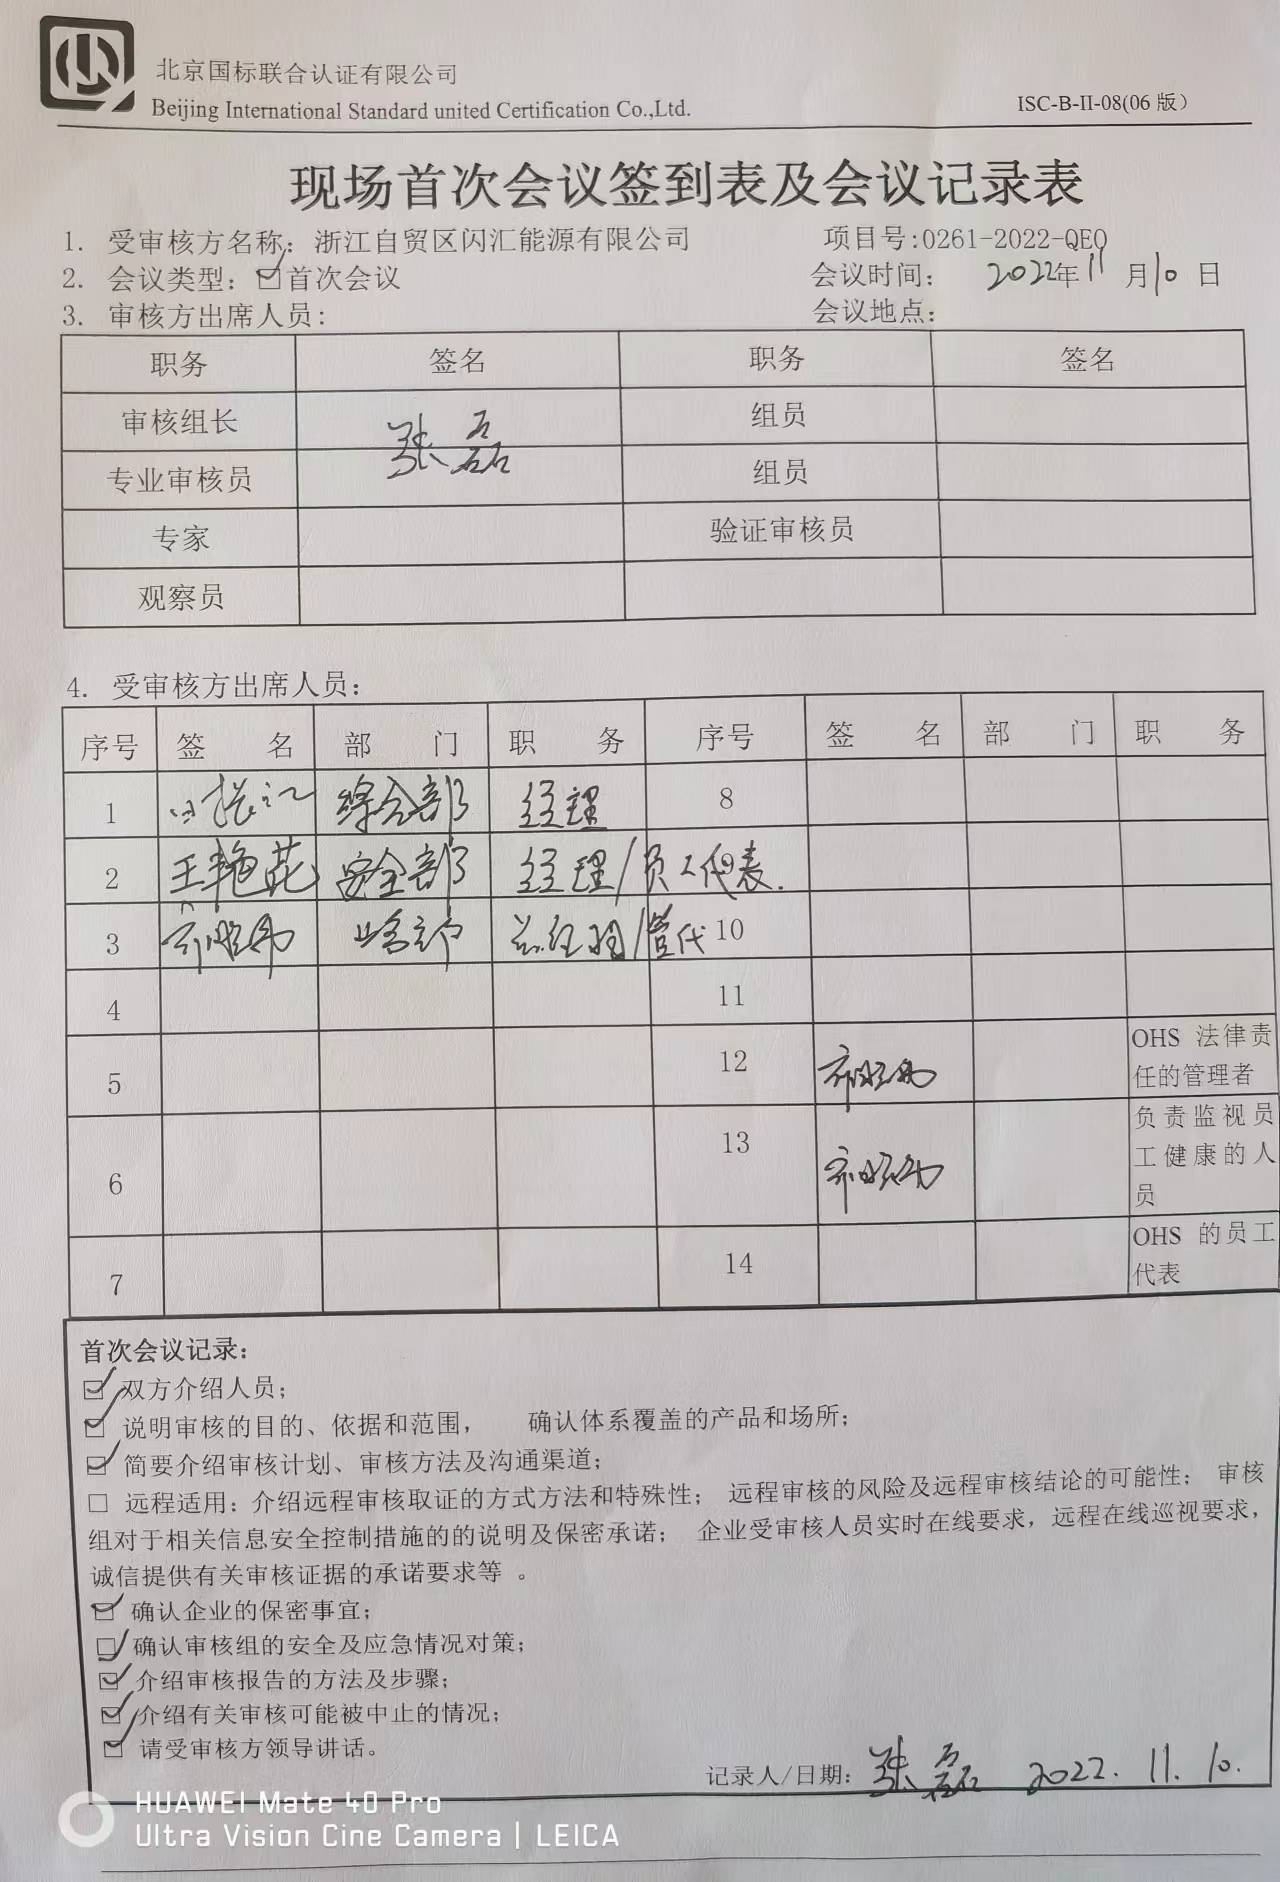 北京国标联合认证有限公司
Beijing International Standard united Certification Co.,Ltd.
ISC-B-II-08(06 版)
现场首次会议签到表及会议记录表
1. 受审核方名称：浙江自贸区闪汇能源有限公司 项目号:0261-2022-QEO
2. 会议类型：☑首次会议 会议时间： 2022年11月10日
3. 审核方出席人员： 会议地点：
职务 签名 职务 签名
审核组长 张磊 组员
专业审核员 组员
专家 验证审核员
观察员
4. 受审核方出席人员：
序号 签 名 部 门 职 务 序号 签 名 部 门 职 务
1 综合部 经理 8
2 王艳花 安全部 经理/员工代表.
3 总经理/管代 10
4 11
5 12 OHS 法律责
任的管理者
6 13 负责监视员
工健康的人
员
7 14 OHS 的员工
代表
首次会议记录：
☑ 双方介绍人员；
☑ 说明审核的目的、依据和范围， 确认体系覆盖的产品和场所；
☑ 简要介绍审核计划、审核方法及沟通渠道；
□ 远程适用：介绍远程审核取证的方式方法和特殊性； 远程审核的风险及远程审核结论的可能性； 审核
组对于相关信息安全控制措施的的说明及保密承诺； 企业受审核人员实时在线要求，远程在线巡视要求，
诚信提供有关审核证据的承诺要求等 。
☑ 确认企业的保密事宜；
☑ 确认审核组的安全及应急情况对策；
☑ 介绍审核报告的方法及步骤；
☑ 介绍有关审核可能被中止的情况；
☑ 请受审核方领导讲话。
记录人/日期：张磊 2022.11.10.
HUAWEI Mate 40 Pro
Ultra Vision Cine Camera | LEICA